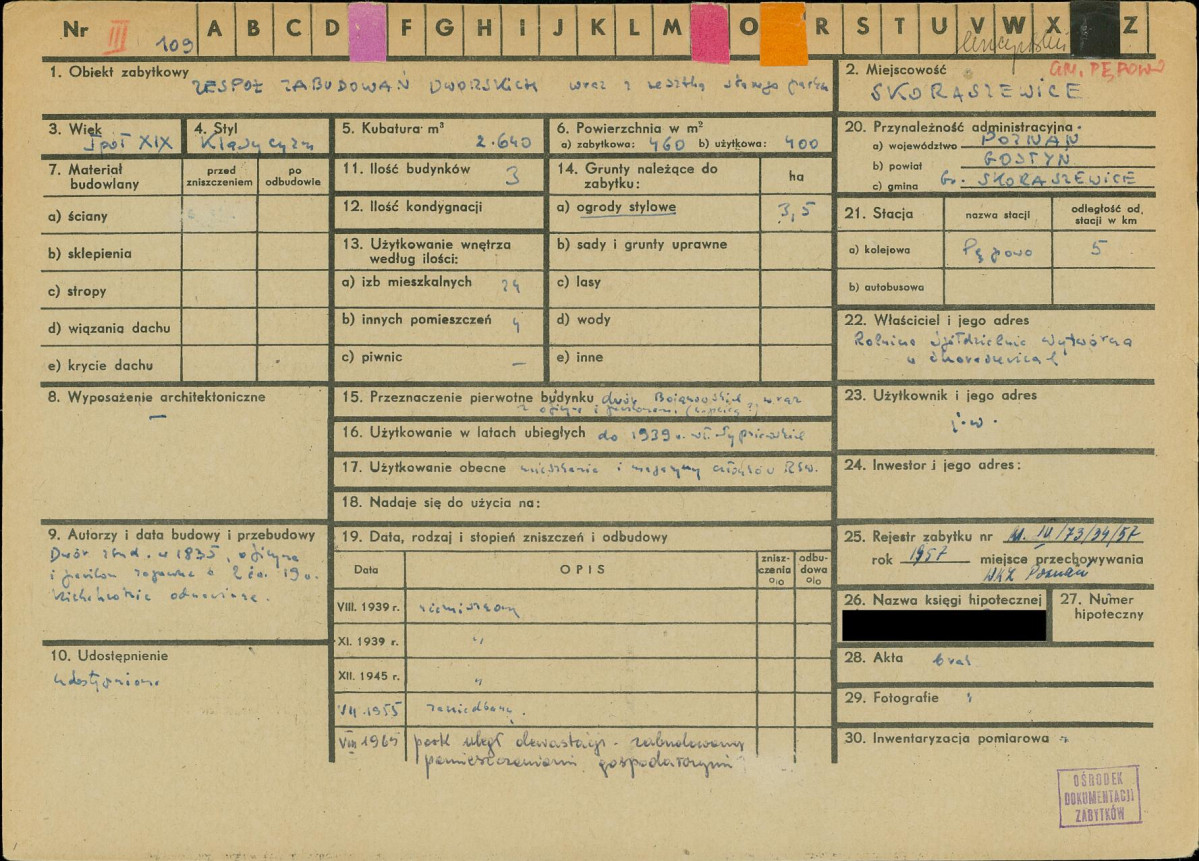 Nr III 109 A B C D F G H I J K L M O R S T U V W X Z
GM. PĘPOWO
1. Obiekt zabytkowy ZESPÓŁ ZABUDOWAŃ DWORSKICH wraz z resztką starego parku
2. Miejscowość
SKORASZEWICE
3. Wiek
I poł XIX
4. Styl
Klasycyzm
5. Kubatura m³
2.640
6. Powierzchnia w m²
a) zabytkowa: 460 b) użytkowa: 400
20. Przynależność administracyjna
a) województwo POZNAŃ
b) powiat GOSTYŃ
c) gmina Gr. SKORASZEWICE
7. Materiał budowlany
przed zniszczeniem
po odbudowie
a) ściany
b) sklepienia
c) stropy
d) wiązania dachu
e) krycie dachu
11. Ilość budynków 3
12. Ilość kondygnacji
13. Użytkowanie wnętrza
według ilości:
a) izb mieszkalnych 24
b) innych pomieszczeń 4
c) piwnic –
14. Grunty należące do
zabytku:
ha
a) ogrody stylowe 3,5
b) sady i grunty uprawne
c) lasy
d) wody
e) inne
21. Stacja
nazwa stacji
odległość od stacji w km
a) kolejowa Pępowo 5
b) autobusowa
22. Właściciel i jego adres
Rolnicza Spółdzielnia Wytwórcza
w Skoraszewicach
8. Wyposażenie architektoniczne
–
15. Przeznaczenie pierwotne budynku dwór Bojanowskich, wraz
z oficyną i pawilonem
16. Użytkowanie w latach ubiegłych do 1939 r. wł.
17. Użytkowanie obecne mieszkania i magazyny RSW.
18. Nadaje się do użycia na:
23. Użytkownik i jego adres
j.w.
24. Inwestor i jego adres:
9. Autorzy i data budowy i przebudowy
Dwór zbud. w 1835, oficyna
i pawilon zapewne z 2 ćw. 19 w.
Kilkakrotnie odnawiane.
10. Udostępnienie
udostępniono
19. Data, rodzaj i stopień zniszczeń i odbudowy
Data
OPIS
znisz-
czenia
%
odbu-
dowa
%
VIII. 1939 r. niezniszczony
XI. 1939 r. "
XII. 1945 r. "
VII. 1955 zaniedbany.
VIII 1965 park uległ dewastacji - zabudowany
pomieszczeniami gospodarczymi
25. Rejestr zabytku nr
rok 1957 miejsce przechowywania
WKZ Poznań
26. Nazwa księgi hipotecznej
27. Numer
hipoteczny
28. Akta brak
29. Fotografie "
30. Inwentaryzacja pomiarowa "
OŚRODEK
DOKUMENTACJI
ZABYTKÓW